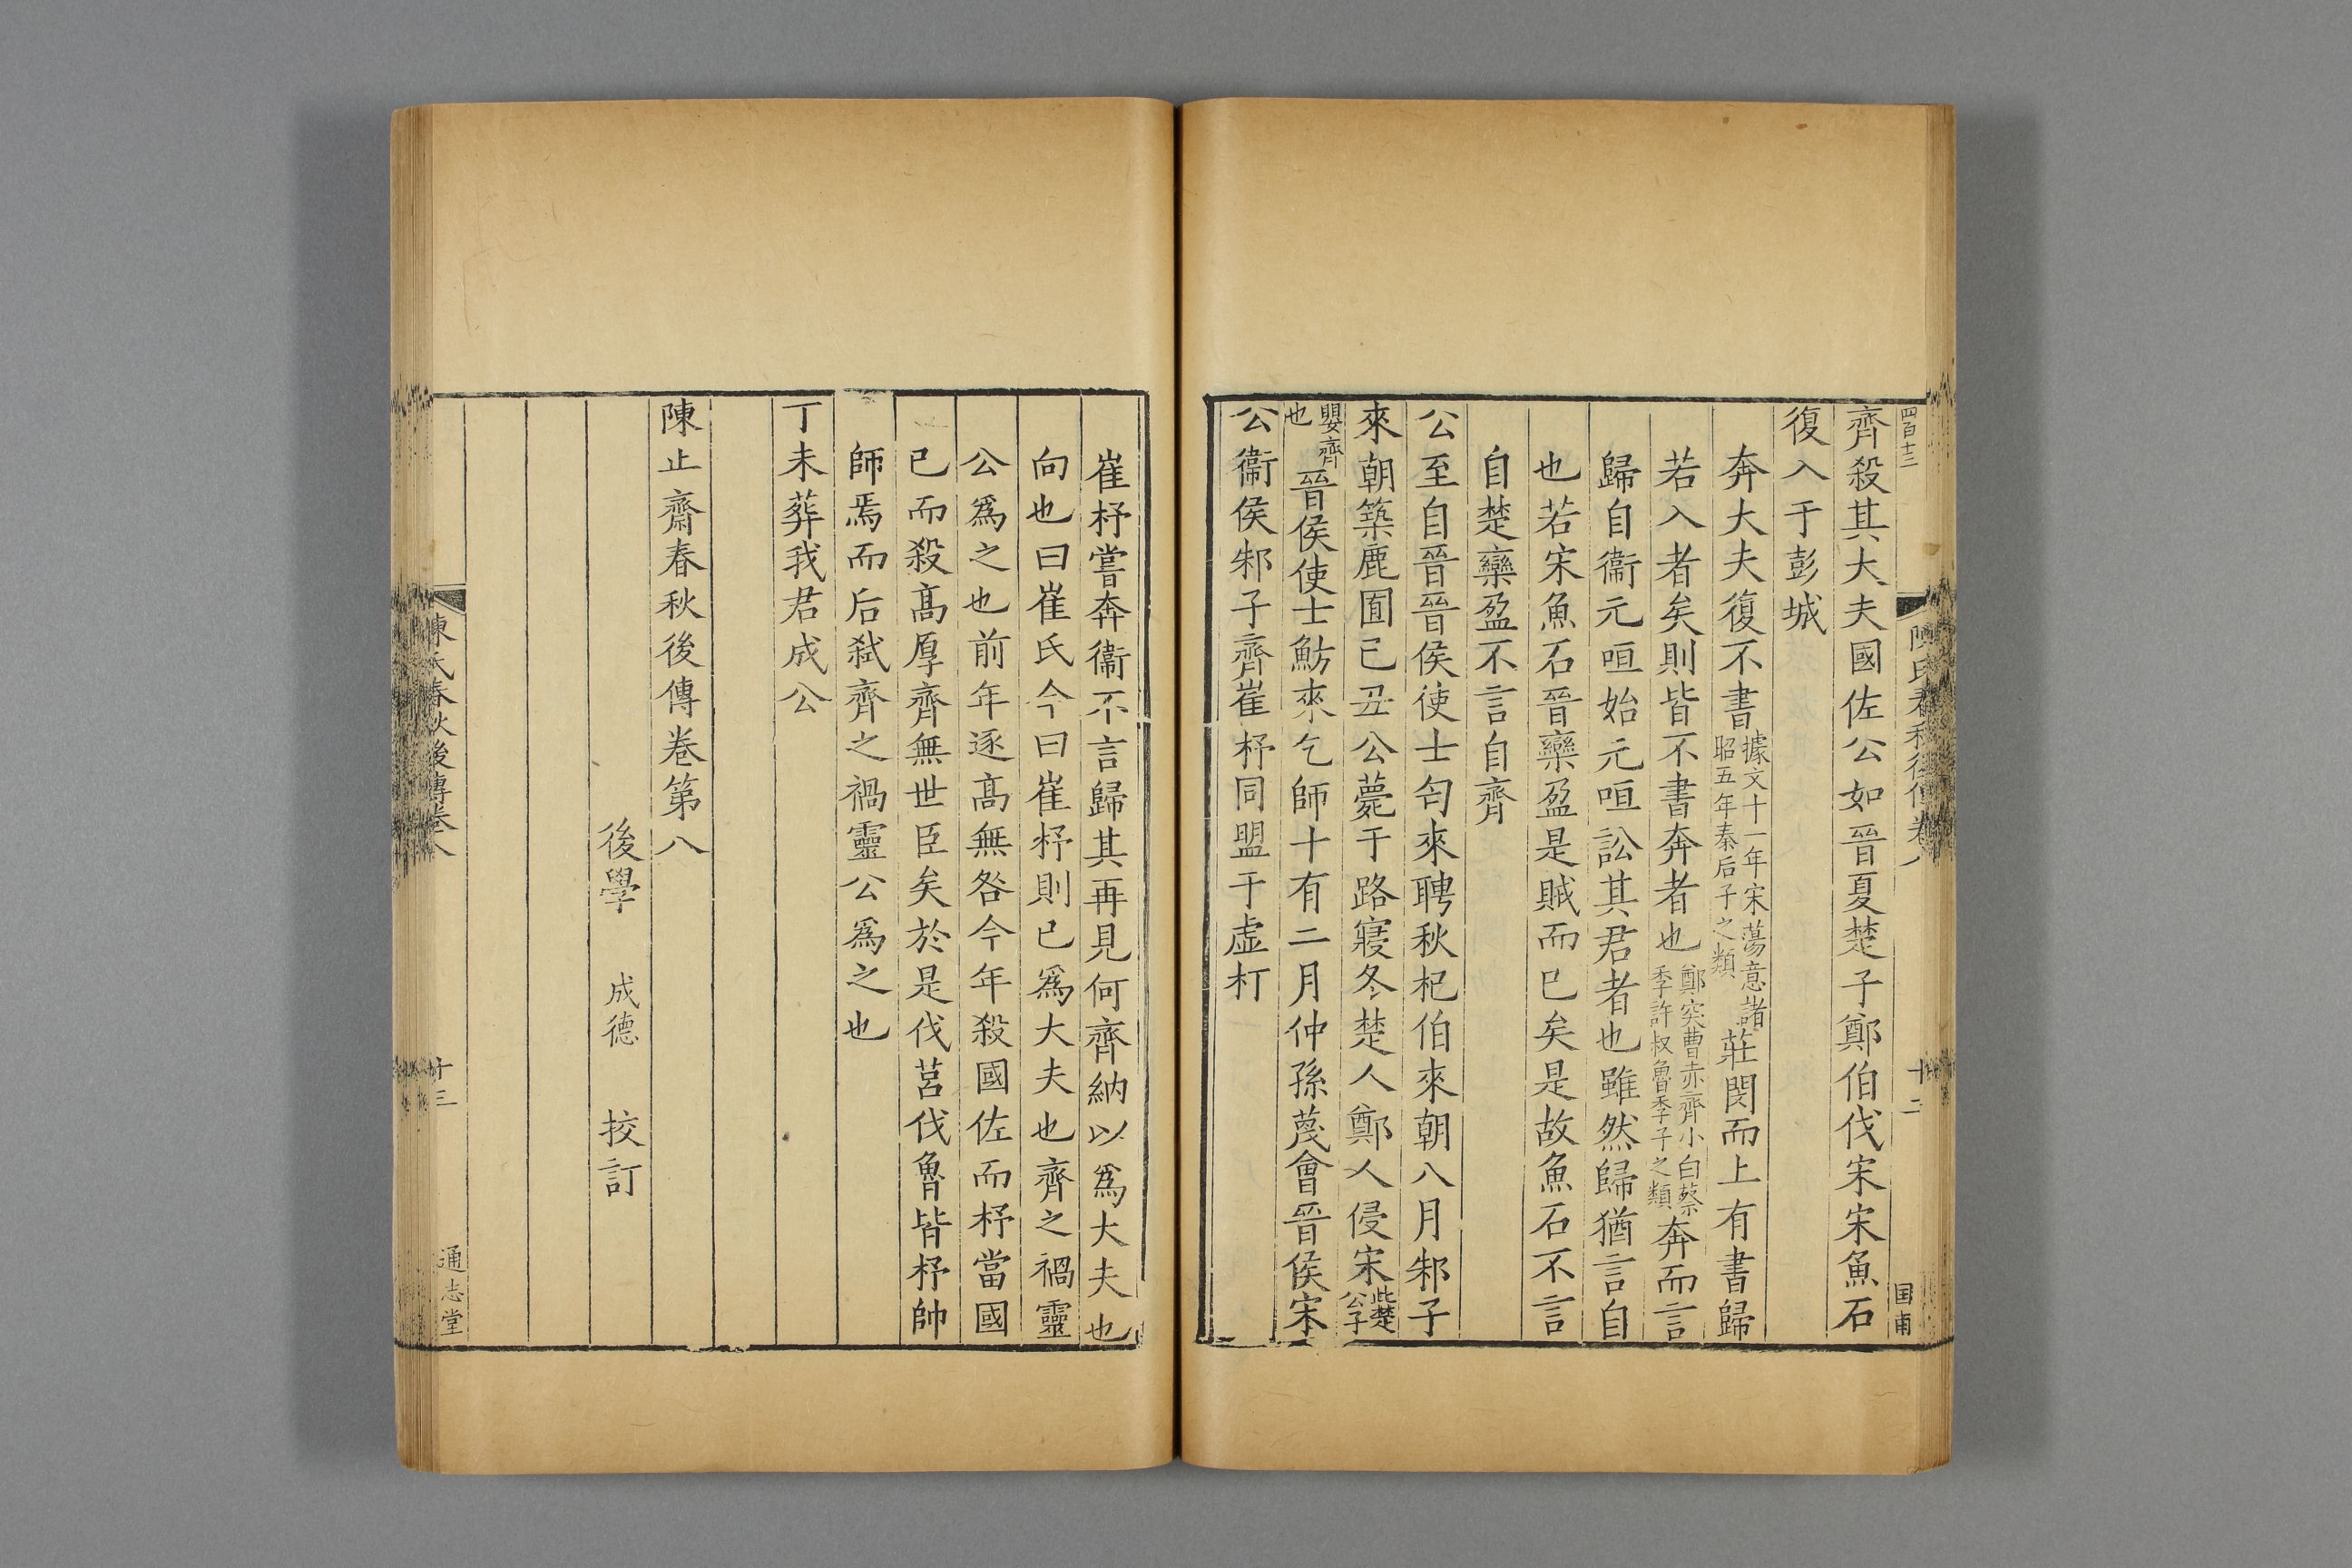 四百十三
陳氏春秋後傳卷八
十二
国甫
齊殺其大夫國佐公如晉夏楚子鄭伯伐宋宋魚石
復入于彭城
奔大夫復不書據文十一年宋蕩意諸昭五年秦后子之類莊閔而上有書歸
若入者矣則皆不書奔者也鄭突曹赤齊小白蔡季許叔魯季子之類奔而言
歸自衞元咺始元咺訟其君者也雖然歸猶言自
也若宋魚石晉欒盈是賊而已矣是故魚石不言
自楚欒盈不言自齊
公至自晉晉侯使士匄來聘秋杞伯來朝八月邾子
來朝築鹿囿己丑公薨于路寢冬楚人鄭人侵宋此楚公子
嬰齊也晉侯使士魴來乞師十有二月仲孫蔑會晉侯宋
公衞侯邾子齊崔杼同盟于虛朾
崔杼嘗奔衞不言歸其再見何齊納以爲大夫也
向也曰崔氏今曰崔杼則已爲大夫也齊之禍靈
公爲之也前年逐髙無咎今年殺國佐而杼當國
已而殺髙厚齊無世臣矣於是伐莒伐魯皆杼帥
師焉而后弑齊之禍靈公爲之也
丁未葬我君成公
陳止齋春秋後傳卷第八
後學 成德 校訂
陳氏春秋後傳卷八
十三
通志堂